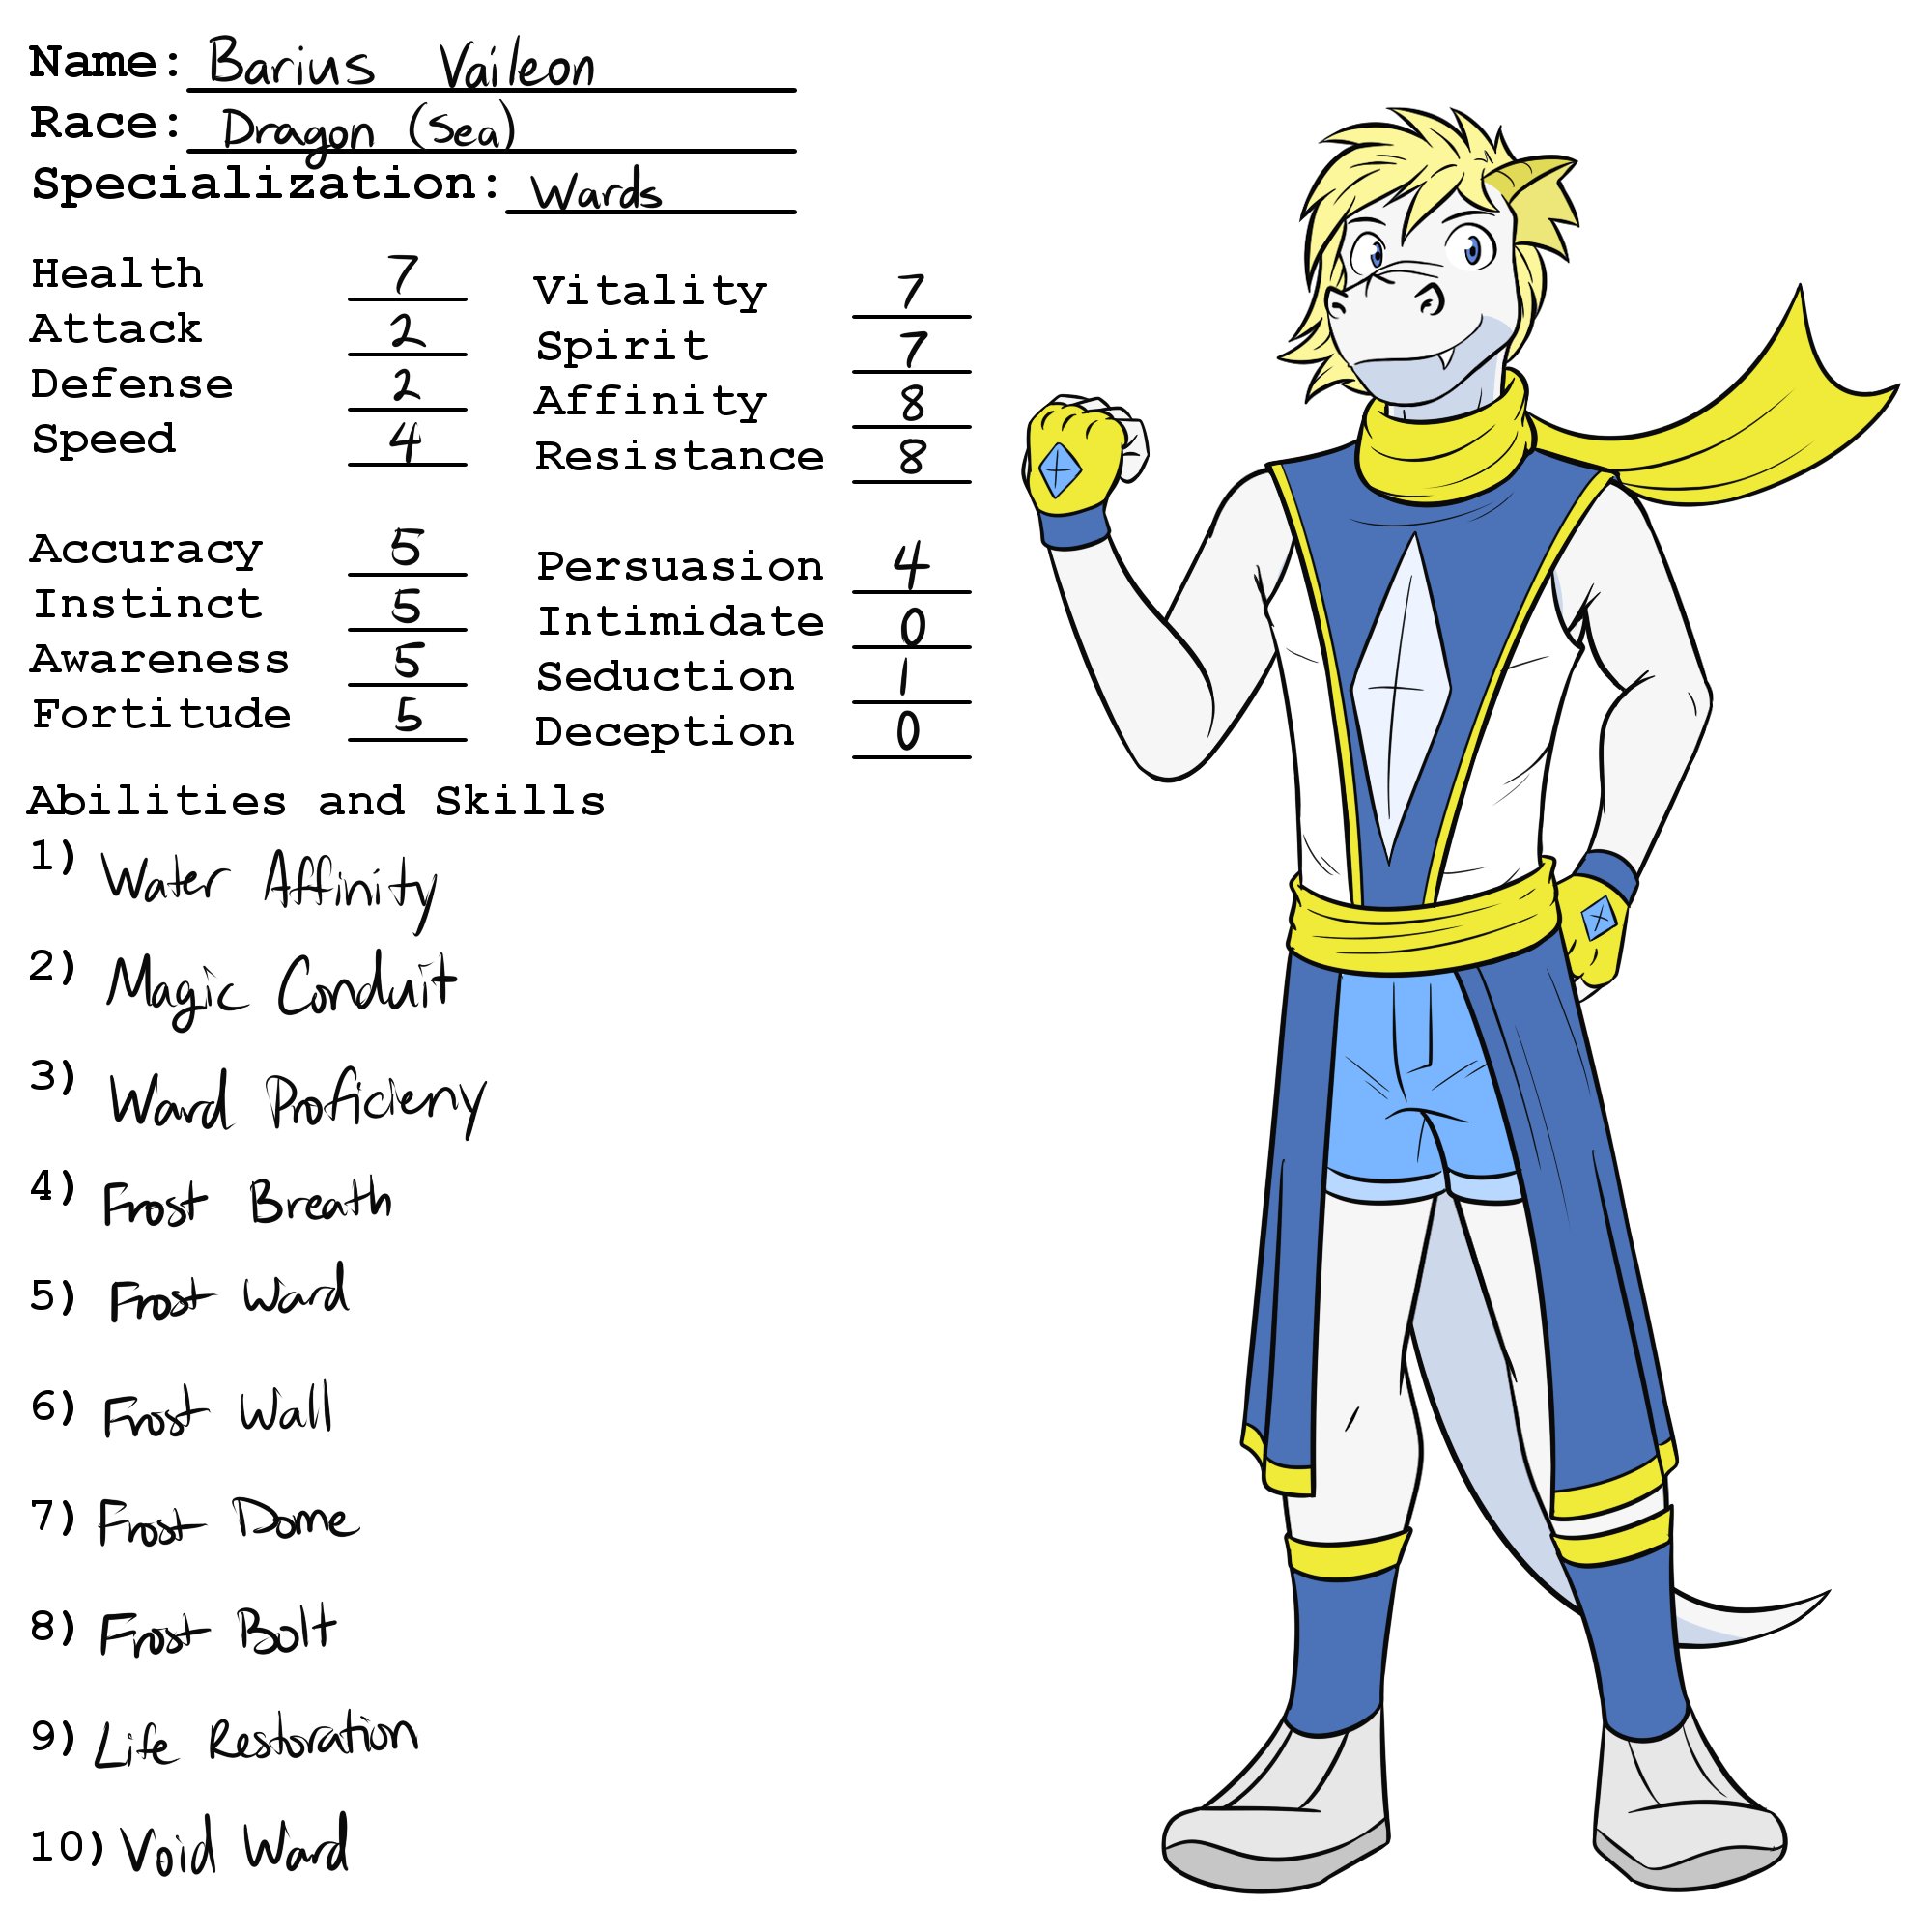 Name: Barius Vaileon
Race: Dragon (Sea)
Specialization: Wards
Health 7
Attack 2
Defense 2
Speed 4
Vitality 7
Spirit 7
Affinity 8
Resistance 8
Accuracy 5
Instinct 5
Awareness 5
Fortitude 5
Persuasion 4
Intimidate 0
Seduction 1
Deception 0
Abilities and Skills
1) Water Affinity
2) Magic Conduit
3) Ward Proficieny
4) Frost Breath
5) Frost Ward
6) Frost Wall
7) Frost Dome
8) Frost Bolt
9) Life Restoration
10) Void Ward